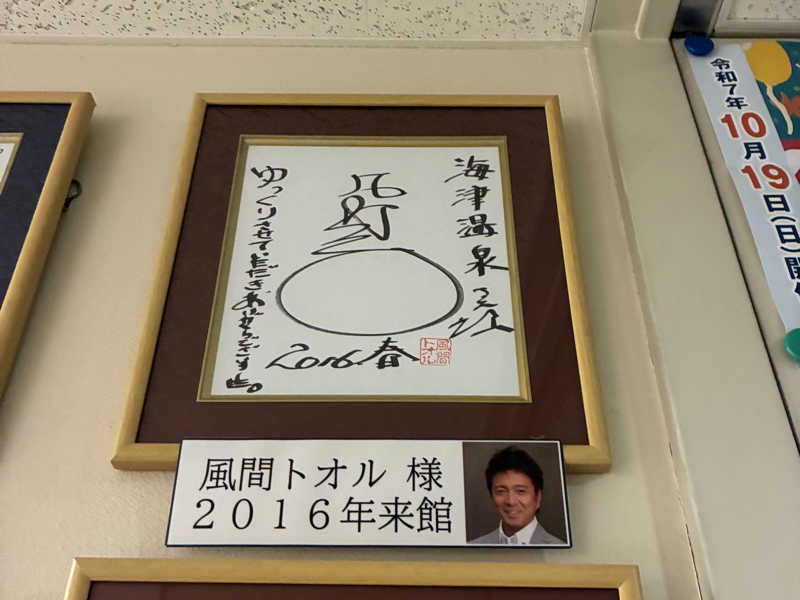 海津温泉さん江
ゆっくりさせて、いただき、ありがとうございます。
2016.春
風間
トオル
風間トオル 様
2016年来館
令和7年
10月19日(日)開